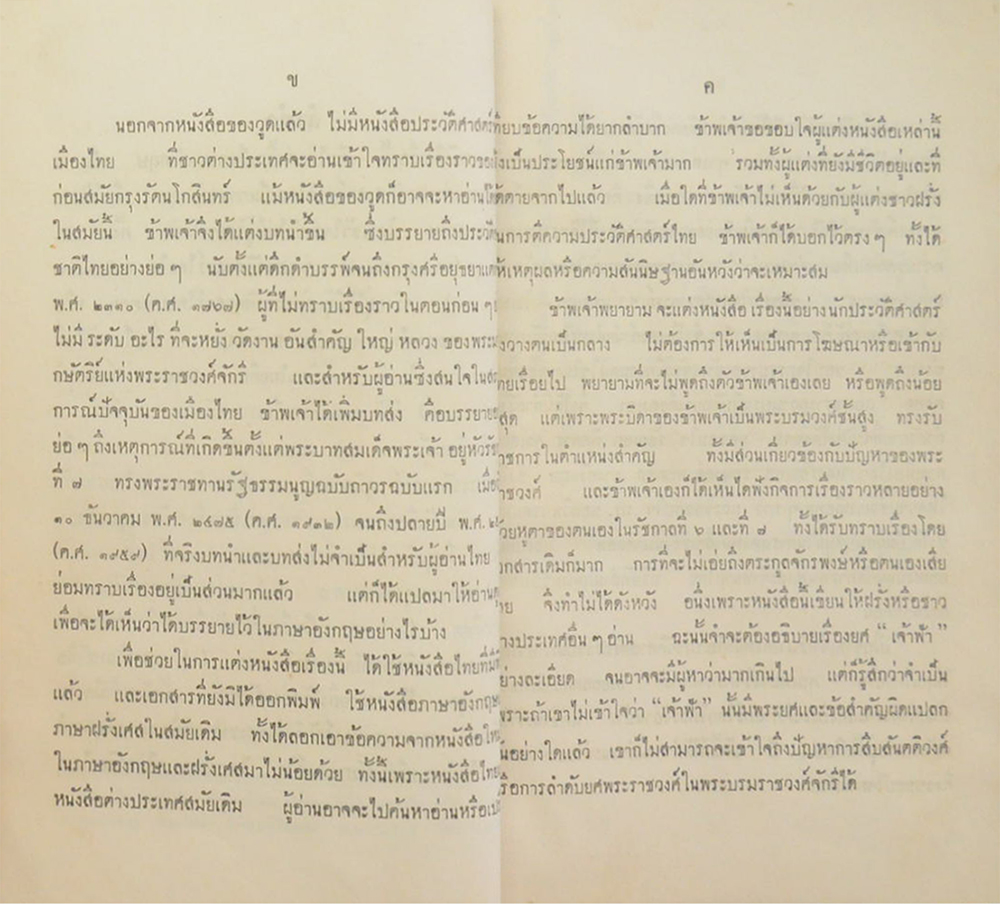 ข
นอกจากหนังสือของวูดแล้ว ไม่มีหนังสือประวัติศาสตร์
เมืองไทย ที่ชาวต่างประเทศจะอ่านเข้าใจทราบเรื่องราว
ก่อนสมัยกรุงรัตนโกสินทร์ แม้หนังสือของวูดก็อาจจะหาอ่าน
ในสมัยนี้ ข้าพเจ้าจึงได้แต่งบทนำขึ้น ซึ่งบรรยายถึง
ชาติไทยอย่างย่อๆ นับตั้งแต่ดึกดำบรรพ์จนถึงกรุงศรีอยุธยา
พ.ศ. ๒๓๑๐ (ค.ศ. ๑๗๖๗) ผู้ที่ไม่ทราบเรื่องราวในตอนก่อนๆ
ไม่มี ระดับ อะไร ที่จะหยั่ง วัดงาน อันสำคัญ ใหญ่ หลวง ของ
กษัตริย์แห่งพระราชวงศ์จักรี และสำหรับผู้อ่านซึ่งสนใจใน
การณ์ปัจจุบันของเมืองไทย ข้าพเจ้าได้เพิ่มบทส่ง คือบรรยาย
ย่อๆ ถึงเหตุการณ์ที่เกิดขึ้นตั้งแต่พระบาทสมเด็จพระเจ้า อยู่หัว
ที่ ๗ ทรงพระราชทานรัฐธรรมนูญฉบับถาวรฉบับแรก
๑๐ ธันวาคม พ.ศ. ๒๔๗๕ (ค.ศ. ๑๙๓๒) จนถึงปลายปี พ.ศ.
(ค.ศ. ๑๙๕๙) ที่จริงบทนำและบทส่งไม่จำเป็นสำหรับผู้อ่านไทย
ย่อมทราบเรื่องอยู่เป็นส่วนมากแล้ว แต่ก็ได้แปลมาให้อ่าน
เพื่อจะได้เห็นว่าได้บรรยายไว้ในภาษาอังกฤษอย่างไรบ้าง
เพื่อช่วยในการแต่งหนังสือเรื่องนี้ ได้ใช้หนังสือไทยที่
แล้ว และเอกสารที่ยังมิได้ออกพิมพ์ ใช้หนังสือภาษาอังกฤษ
ภาษาฝรั่งเศสในสมัยเดิม ทั้งได้ลอกเอาข้อความจากหนังสือ
ในภาษาอังกฤษและฝรั่งเศสมาไม่น้อยด้วย ทั้งนี้เพราะหนังสือไทย
หนังสือต่างประเทศสมัยเดิม ผู้อ่านอาจจะไปค้นหาอ่านหรือ
ค
เทียบข้อความได้ยากลำบาก ข้าพเจ้าขอขอบใจผู้แต่งหนังสือเหล่านี้
เป็นประโยชน์แก่ข้าพเจ้ามาก รวมทั้งผู้แต่งที่ยังมีชีวิตอยู่และที่
ได้ตายจากไปแล้ว เมื่อใดที่ข้าพเจ้าไม่เห็นด้วยกับผู้แต่งชาวฝรั่ง
ในการตีความประวัติศาสตร์ไทย ข้าพเจ้าก็ได้บอกไว้ตรงๆ ทั้งได้
ให้เหตุผลหรือความสันนิษฐานอันหวังว่าจะเหมาะสม
ข้าพเจ้าพยายาม จะแต่งหนังสือ เรื่องนี้อย่าง นักประวัติศาสตร์
วางตนเป็นกลาง ไม่ต้องการให้เห็นเป็นการโฆษณาหรือเข้ากับ
เรื่อยไป พยายามที่จะไม่พูดถึงตัวข้าพเจ้าเองเลย หรือพูดถึงน้อย
สุด แต่เพราะพระบิดาของข้าพเจ้าเป็นพระบรมวงศ์ชั้นสูง ทรงรับ
ราชการในตำแหน่งสำคัญ ทั้งมีส่วนเกี่ยวข้องกับปัญหาของพระ
ราชวงศ์ และข้าพเจ้าเองก็ได้เห็นได้ฟังกิจการเรื่องราวหลายอย่าง
ด้วยหูตาของตนเองในรัชกาลที่ ๖ และที่ ๗ ทั้งได้รับทราบเรื่องโดย
เอกสารเดิมก็มาก การที่จะไม่เอ่ยถึงตระกูลจักรพงษ์หรือตนเองเสีย
เลย จึงทำไม่ได้ดังหวัง อนึ่งเพราะหนังสือนี้เขียนให้ฝรั่งหรือชาว
ต่างประเทศอื่นๆ อ่าน ฉะนั้นจำจะต้องอธิบายเรื่องยศ “เจ้าฟ้า”
อย่างละเอียด จนอาจจะมีผู้หาว่ามากเกินไป แต่ก็รู้สึกว่าจำเป็น
เพราะถ้าเขาไม่เข้าใจว่า “เจ้าฟ้า” นั้นมีพระยศและข้อสำคัญผิดแปลก
อย่างใดแล้ว เขาก็ไม่สามารถจะเข้าใจถึงปัญหาการสืบสันตติวงศ์
หรือการลำดับยศพระราชวงศ์ในพระบรมราชวงศ์จักรีได้